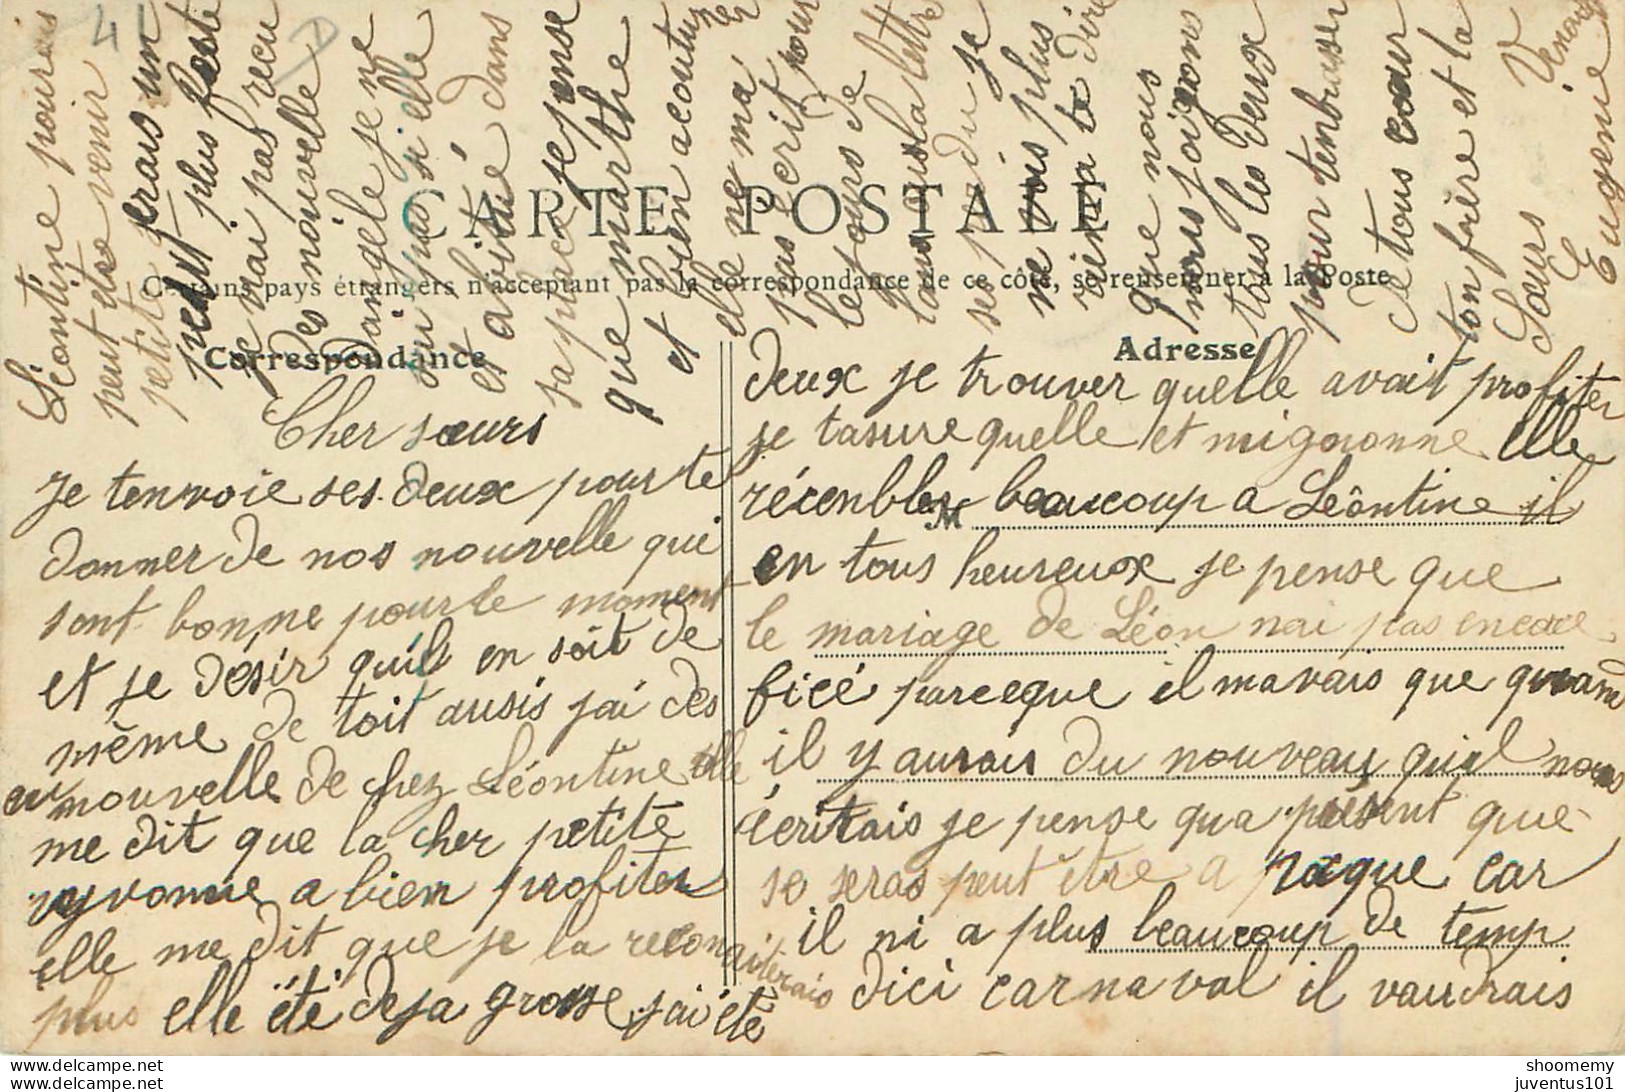 CARTE POSTALE
Certains pays étrangers n'acceptant pas la correspondance de ce côté, se renseigner à la Poste
Correspondance
Adresse
M
Cher sœurs
je tenvoie ses deux pour te
donner de nos nouvelle qui
sont bonne pour le moment
et je desir quil en soit de
même de toit ausis jai des
nouvelle de chez Léontine elle
me dit que la cher petite
yvonne a bien profiter
elle me dit que je la reconaiterais
plus elle été deja grosse jai été
deux je trouver quelle avait profiter
je tasure quelle et mignonne elle
récenbler beaucoup a Léontine il
en tous heureux je pense que
le mariage de Léon nai pas encore
ficé parceque il mavais que quand
il y aurais du nouveau quil nous
écritais je pense qua présent que
se seras peut être a paque car
il ni a plus beaucoup de temp
dici carnaval il vaudrais
Léontine pourais
peut etre venir
petit
perais un
peut plus feste
je nai pas recu
des nouvelle
dangèle je ne
sui pas si elle
et abitué dans
sa place je pense
que marthe
et bien acoutumer
elle ne ma
pas écrit pour
le jours de
lans la lettre
ses perdu je
ne vois plus
rien a te dire
que nous
nous joignons
tous les deux
pour tenbrasser
de tous cœur
ton frère et ta
Sœurs
Eugenie
4
shoomemy
juventus101